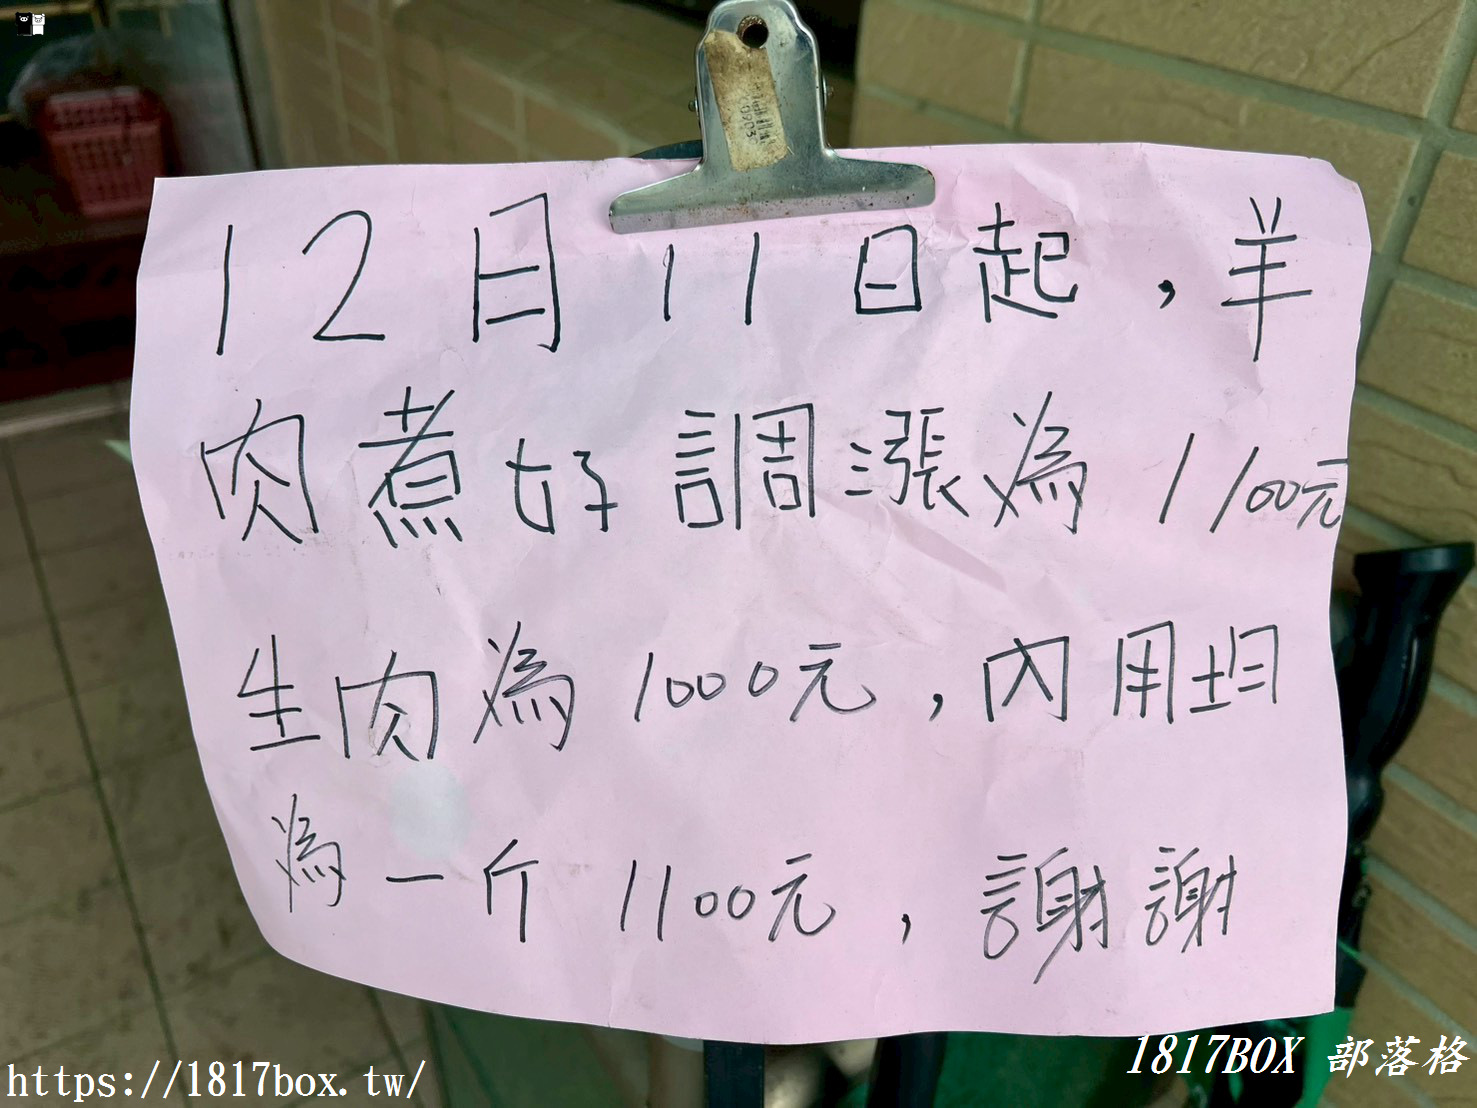 12月11日起，羊
肉煮好調漲為1100元
生肉為1000元，內用坦
為一斤1100元，謝謝
https://1817box.tw/
1817BOX 部落格